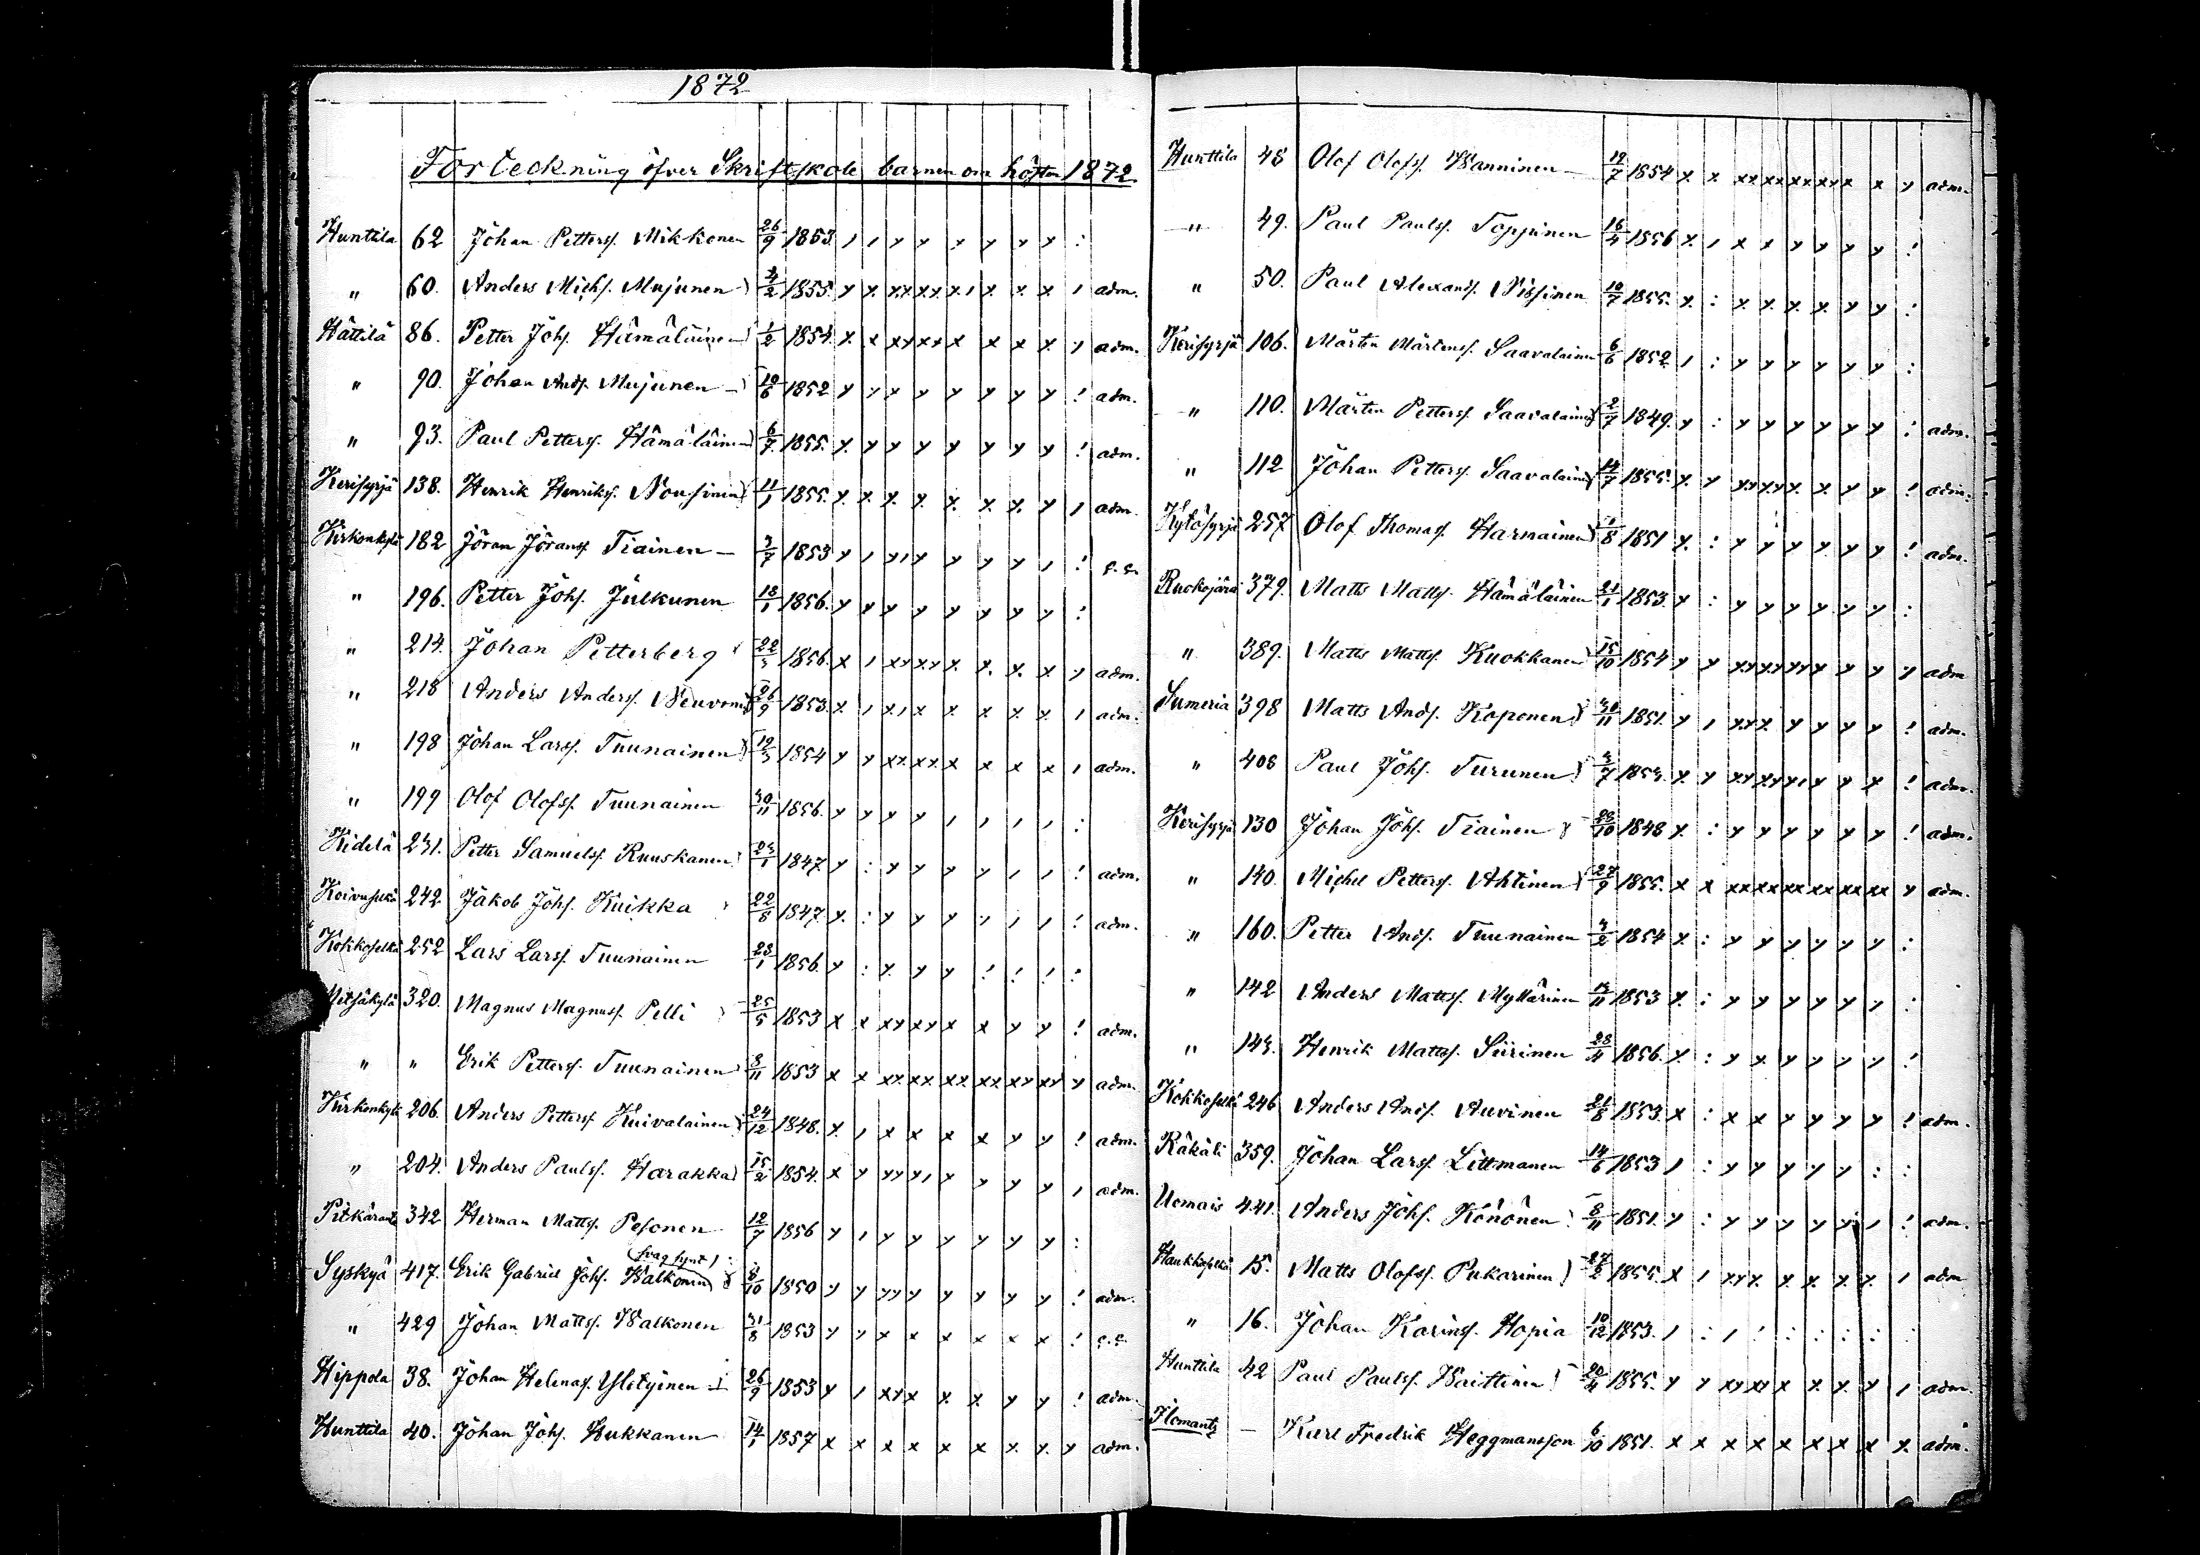 1872
Förteckning öfver Skriftskole barnen om hösten 1872
Hunttila 62 Johan Petters. Mikkonen 26/9 1853 , , y y y y y y :
" 60. Anders Michs. Mujunen 4/2 1855 y x xx xx x, x x x , adm.
Hättilä 86. Petter Johs. Hämäläinen 1/2 1854 x x xy xx x x x x , adm.
" 90. Johan Ands. Mujunen 10/6 1852 y y x y y y y y ! adm.
" 93. Paul Petters. Hämäläinen 6/7 1855. y y y y y y y y ! adm.
Kerisyrjä 138. Henrik Henriks. Nousinen 11/1 1855. x x x x x x x y , adm.
Kirkonkylä 182 Jöran Jörans. Tiainen 3/7 1853 y , y, y y y y , !
" 196. Petter Johs. Julkunen 18/1 1856. y y y y y y y y :
" 214. Johan Petterberg 22/3 1856. x , xy xy x x x x y adm.
" 218 Anders Anders. Neuvonen 26/9 1853. x , x, x x x x x , adm.
" 198 Johan Lars. Tuunainen 12/3 1854 y y xx xx x x x x , adm.
" 199 Olof Olofs. Tuunainen 30/11 1856. y y y y , , , , :
Kidelä 231. Petter Samuels. Ruuskanen 23/1 1847. y : y y y y , , ! adm.
Koivuselkä 242 Jakob Johs. Kuikka 22/8 1847. y : y y y , , , ! adm.
Kokkoselkä 252 Lars Lars. Tuunainen 23/1 1856. y : y y y ! ! ! :
Metsäkylä 320. Magnus Magnus. Pelli 25/5 1853 x x xy xy x x y y ! adm.
" " Erik Petters. Tuunainen 3/11 1853 x x xx xx xx xx xy xy y adm.
Kirkonkylä 206. Anders Petters. Kuivalainen 24/12 1848. x , x x x x y y ! adm.
" 204. Anders Pauls. Harakka 15/2 1854. x y yy y, y y y y , adm.
Pitkäranta 342 Herman Matts. Pesonen 12/7 1856 y , y y y y y y :
(svag synt)
Syskyä 417. Erik Gabriel Johs. Walkonen 8/10 1850 y y yy y y y y y ! adm.
" 429 Johan Matts. Walkonen 31/8 1853 y y x x x x x x !
Hippola 38. Johan Helenas. Yletyinen 26/9 1853 y , xy x x x y y ! adm.
Hunttila 40. Johan Johs. Hukkanen 14/1 1857 x x x x x x x x y adm.
Hunttila 48 Olof Olofs. Wanninen 12/7 1854 x x xx xx xx xx x x y adm.
" 49. Paul Pauls. Toppinen 16/4 1856 x , x x y y y y !
" 50. Paul Alexands. Nissinen 10/7 1855. x : x x x x y y :
Kerisyrjä 106. Mårten Mårtens. Saavalainen 6/6 1852 , : y y y y y y :
" 110. Mårten Petters. Saavalainen 2/7 1849. y : y y y y y y : adm.
" 112 Johan Petters. Saavalainen 14/7 1855. x y yy yy x x y y ! adm.
Kytösyrjä 257 Olof Thomas. Harmainen 1/8 1851 x : y y y y y y ! adm.
Ruokojärvi 379. Matts Matts. Hämäläinen 21/1 1853. y : y y y y y y :
" 389. Matts Matts. Kuokkanen 15/10 1854 y y xy xy xy x y y y adm
Sumeria 398 Matts Ands. Koponen 30/11 1851. y , xy x y y y y ! adm.
" 408 Paul Johs. Turunen 3/7 1853. x y xy xy y, y y x ! adm.
Kerisyrjä 130 Johan Johs. Tiainen 28/10 1848 x : y y y y y y ! adm.
" 140. Michel Petters. Ahtinen 27/9 1855. x x xx xx xx xx xx xx y adm.
" 160. Petter Ands. Tuunainen 4/2 1854 x : y y y y y y :
" 142 Anders Matts. Myllärinen 14/11 1853 x : y y y y y y :
" 143. Henrik Matts. Siirinen 28/4 1856. x : y x y y y y !
Kokkoselkä 246 Anders Ands. Auvinen 21/8 1853. x : x x y y y y ! adm.
Räkäli 359. Johan Lars. Littmanen 14/6 1853 , : y y y y y : :
Uomais 441. Anders Johs. Könönen 8/11 1851. y : y y y y y , ! adm.
Haukkaselkä 15. Matts Olofs. Pukarinen 27/2 1855. x , xy x x x x x , adm
" 16. Johan Karins. Hopia 10/12 1853. , : , ! : : : : :
Hunttila 42 Paul Pauls. Waittinen 20/4 1855. y y xy xy x x y y , adm.
Ilomants — Karl Fredrik Heggmansson 6/10 1851. x x x x x x x x x adm.